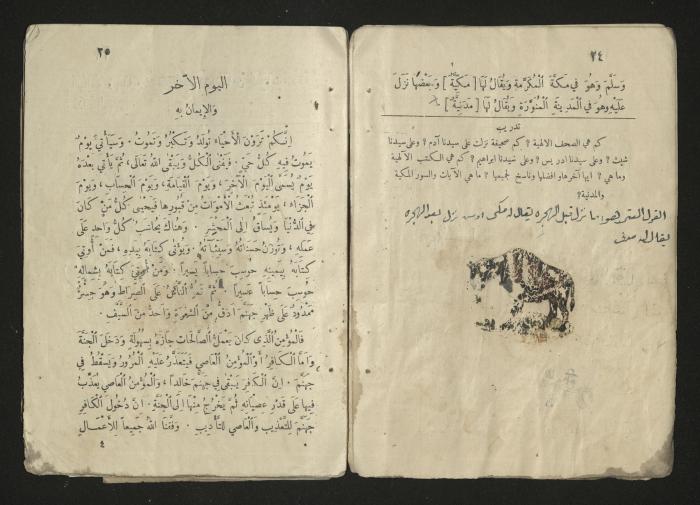 ٢٤
وَسَلَّمَ وَهُوَ فِي مَكَّةَ الْمُكَرَّمَةِ وَيُقَالُ لَهَا [مَكِّيَّةٌ] وَبَعْضُهَا نَزَلَ
عَلَيْهِ وَهُوَ فِي الْمَدِينَةِ الْمُنَوَّرَةِ وَيُقَالُ لَهَا [مَدَنِيَّةٌ]
تدريب
كم هي الصحف الالهية ؟ كم صحيفة نزلت على سيدنا آدم ؟ وعلى سيدنا
شيث ؟ وعلى سيدنا ادريس ؟ وعلى سيدنا ابراهيم ؟ كم هي الكتب الالهية
وما هي ؟ ايها آخرها وافضلها وناسخ لجميعها ؟ ما هي الآيات والسور المكية
والمدنية؟
هو ما نزل قبل الهجرة يقال له مكي نزل بعد الهجرة
يقال له
٢٥
اليوم الآخر
وَالإِيمَانُ بِهِ
إِنَّكُمْ تَرَوْنَ الْأَحْيَاءَ تُولَدُ وَتَكْبُرُ وَتَمُوتُ . وَسَيَأْتِي يَوْمٌ
يَمُوتُ فِيهِ كُلُّ حَيٍّ . فَيَفْنَى الْكُلُّ وَيَبْقَى اللهُ تَعَالَى، ثُمَّ يَأْتِي بَعْدَهُ
يَوْمٌ يُسَمَّى الْيَوْمَ الْآخَرَ، وَيَوْمَ الْقِيَامَةِ، وَيَوْمَ الْحِسَابِ، وَيَوْمَ
الْجَزَاءِ، يَوْمَئِذٍ تُبْعَثُ الْأَمْوَاتُ مِنْ قُبُورِهَا فَيَحْيَى كُلُّ مَنْ كَانَ
فِي الدُّنْيَا وَيُسَاقُ إِلَى الْمَحْشَرِ . وَهُنَاكَ يُحَاسَبُ كُلُّ وَاحِدٍ عَلَى
عَمَلِهِ، وَتُوزَنُ حَسَنَاتُهُ وَسَيِّئَاتُهُ . وَيُؤْتَى كِتَابَهُ بِيَدِهِ، فَمَنْ أُوتِيَ
كِتَابَهُ بِيَمِينِهِ حُوسِبَ حِسَاباً يَسِيراً . وَمَنْ أُوتِيَ كِتَابَهُ بِشِمَالِهِ
حُوسِبَ حِسَاباً عَسِيراً . ثُمَّ تَمُرُّ النَّاسُ عَلَى الصِّرَاطِ وَهُوَ جِسْرٌ
مَمْدُودٌ عَلَى ظَهْرِ جَهَنَّمَ أَدَقُّ مِنَ الشَّعْرَةِ وَأَحَدُّ مِنَ السَّيْفِ .
فَالْمُؤْمِنُ الَّذِي كَانَ يَعْمَلُ الصَّالِحَاتِ جَازَهُ بِسُهُولَةٍ وَدَخَلَ الْجَنَّةَ
وَأَمَّا الْكَافِرُ أَوِ الْمُؤْمِنُ الْعَاصِي فَيَتَعَذَّرُ عَلَيْهِ الْمُرُورُ وَيَسْقُطُ فِي
جَهَنَّمَ . إِنَّ الْكَافِرَ يَبْقَى فِي جَهَنَّمَ خَالِداً، وَالْمُؤْمِنُ الْعَاصِي يُعَذَّبُ
فِيهَا عَلَى قَدْرِ عِصْيَانِهِ ثُمَّ يَخْرُجُ مِنْهَا إِلَى الْجَنَّةِ . إِنَّ دُخُولَ الْكَافِرِ
جَهَنَّمَ لِلتَّعْذِيبِ وَالْعَاصِي لِلتَّأْدِيبِ . وَفَّقَنَا اللهُ جَمِيعاً لِلْأَعْمَالِ
٤